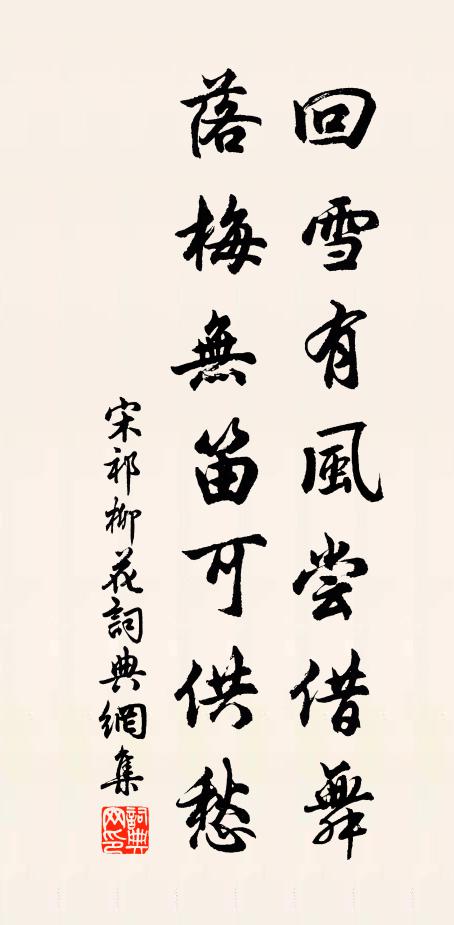 回雪有風尝借舞
落梅無笛可供愁
宋祁柳花詞典網集
詞典网印